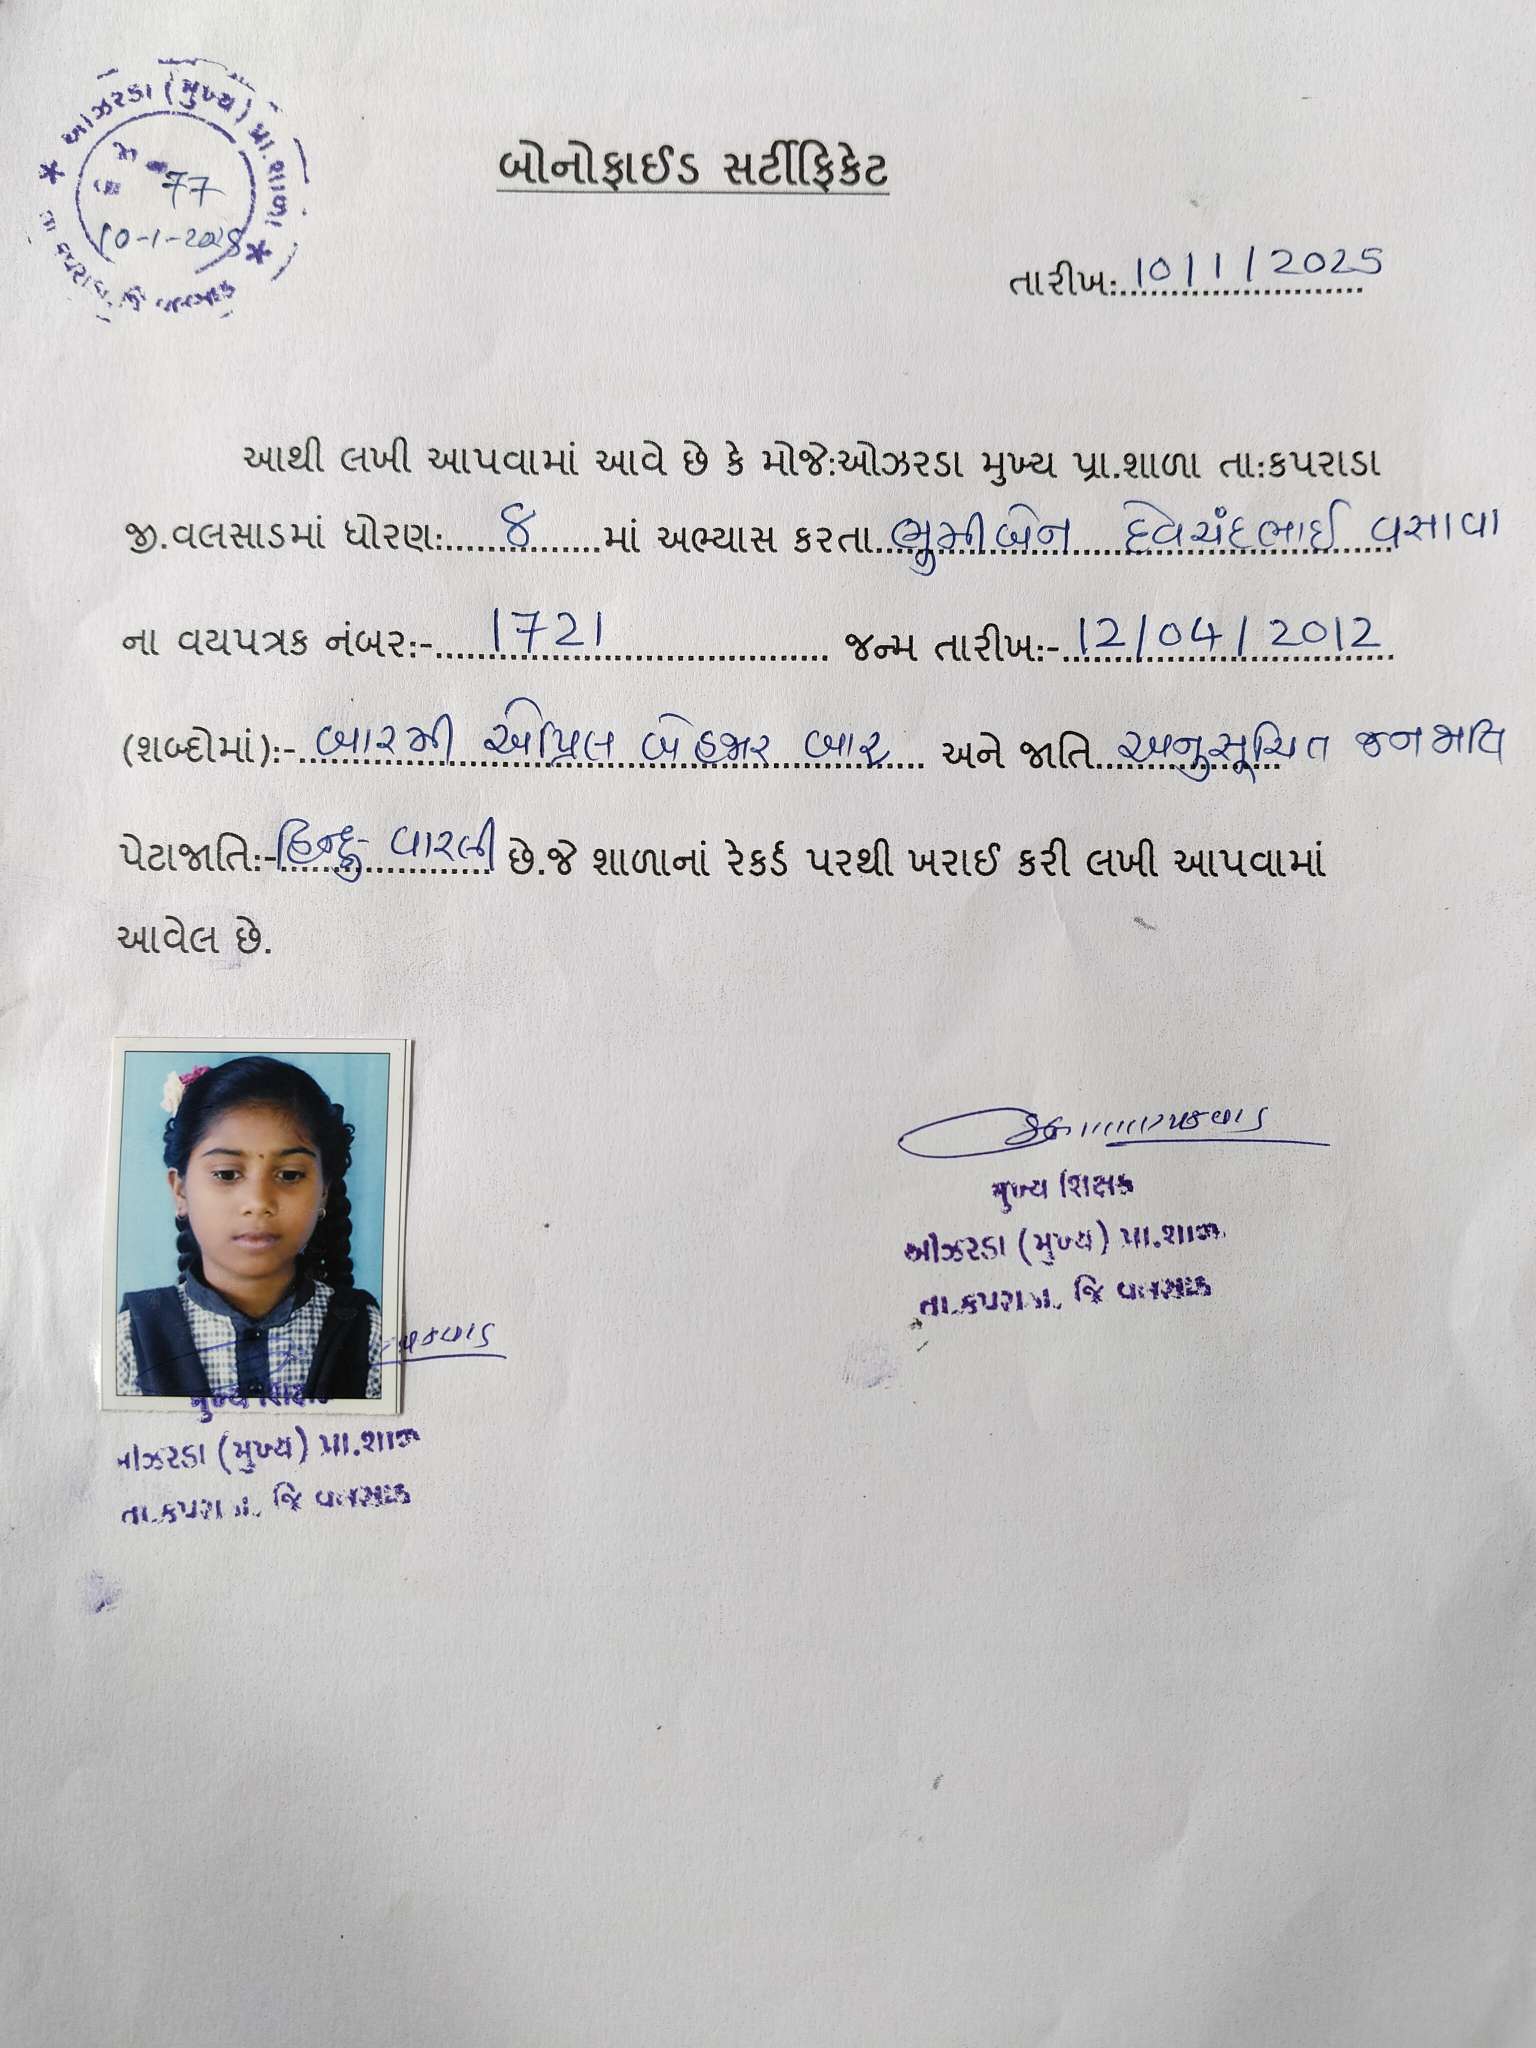 ઓઝરડા (મુખ્ય) પ્રા.શાળા
77
10-1-2025
બોનોફાઈડ સર્ટીફિકેટ
તારીખ:10/1/2025
આથી લખી આપવામાં આવે છે કે મોજે:ઓઝરડા મુખ્ય પ્રા.શાળા તા:કપરાડા
જી.વલસાડમાં ધોરણ:.....8......માં અભ્યાસ કરતા..ભુમીબેન દેવચંદભાઈ વસાવા
ના વયપત્રક નંબર:-....1721.... જન્મ તારીખ:-12/04/2012
(શબ્દોમાં):- બારમી એપ્રિલ બેહજાર બાર અને જાતિ..અનુસૂચિત જનજાતિ
પેટાજાતિ:-હિન્દુ- વારલી છે.જે શાળાનાં રેકર્ડ પરથી ખરાઈ કરી લખી આપવામાં
આવેલ છે.
મુખ્ય શિક્ષક
ઓઝરડા (મુખ્ય) પ્રા.શાળા
તા.કપરાડા, જિ વલસાડ
મુખ્ય શિક્ષક
ઓઝરડા (મુખ્ય) પ્રા.શાળા
તા.કપરાડા, જિ વલસાડ